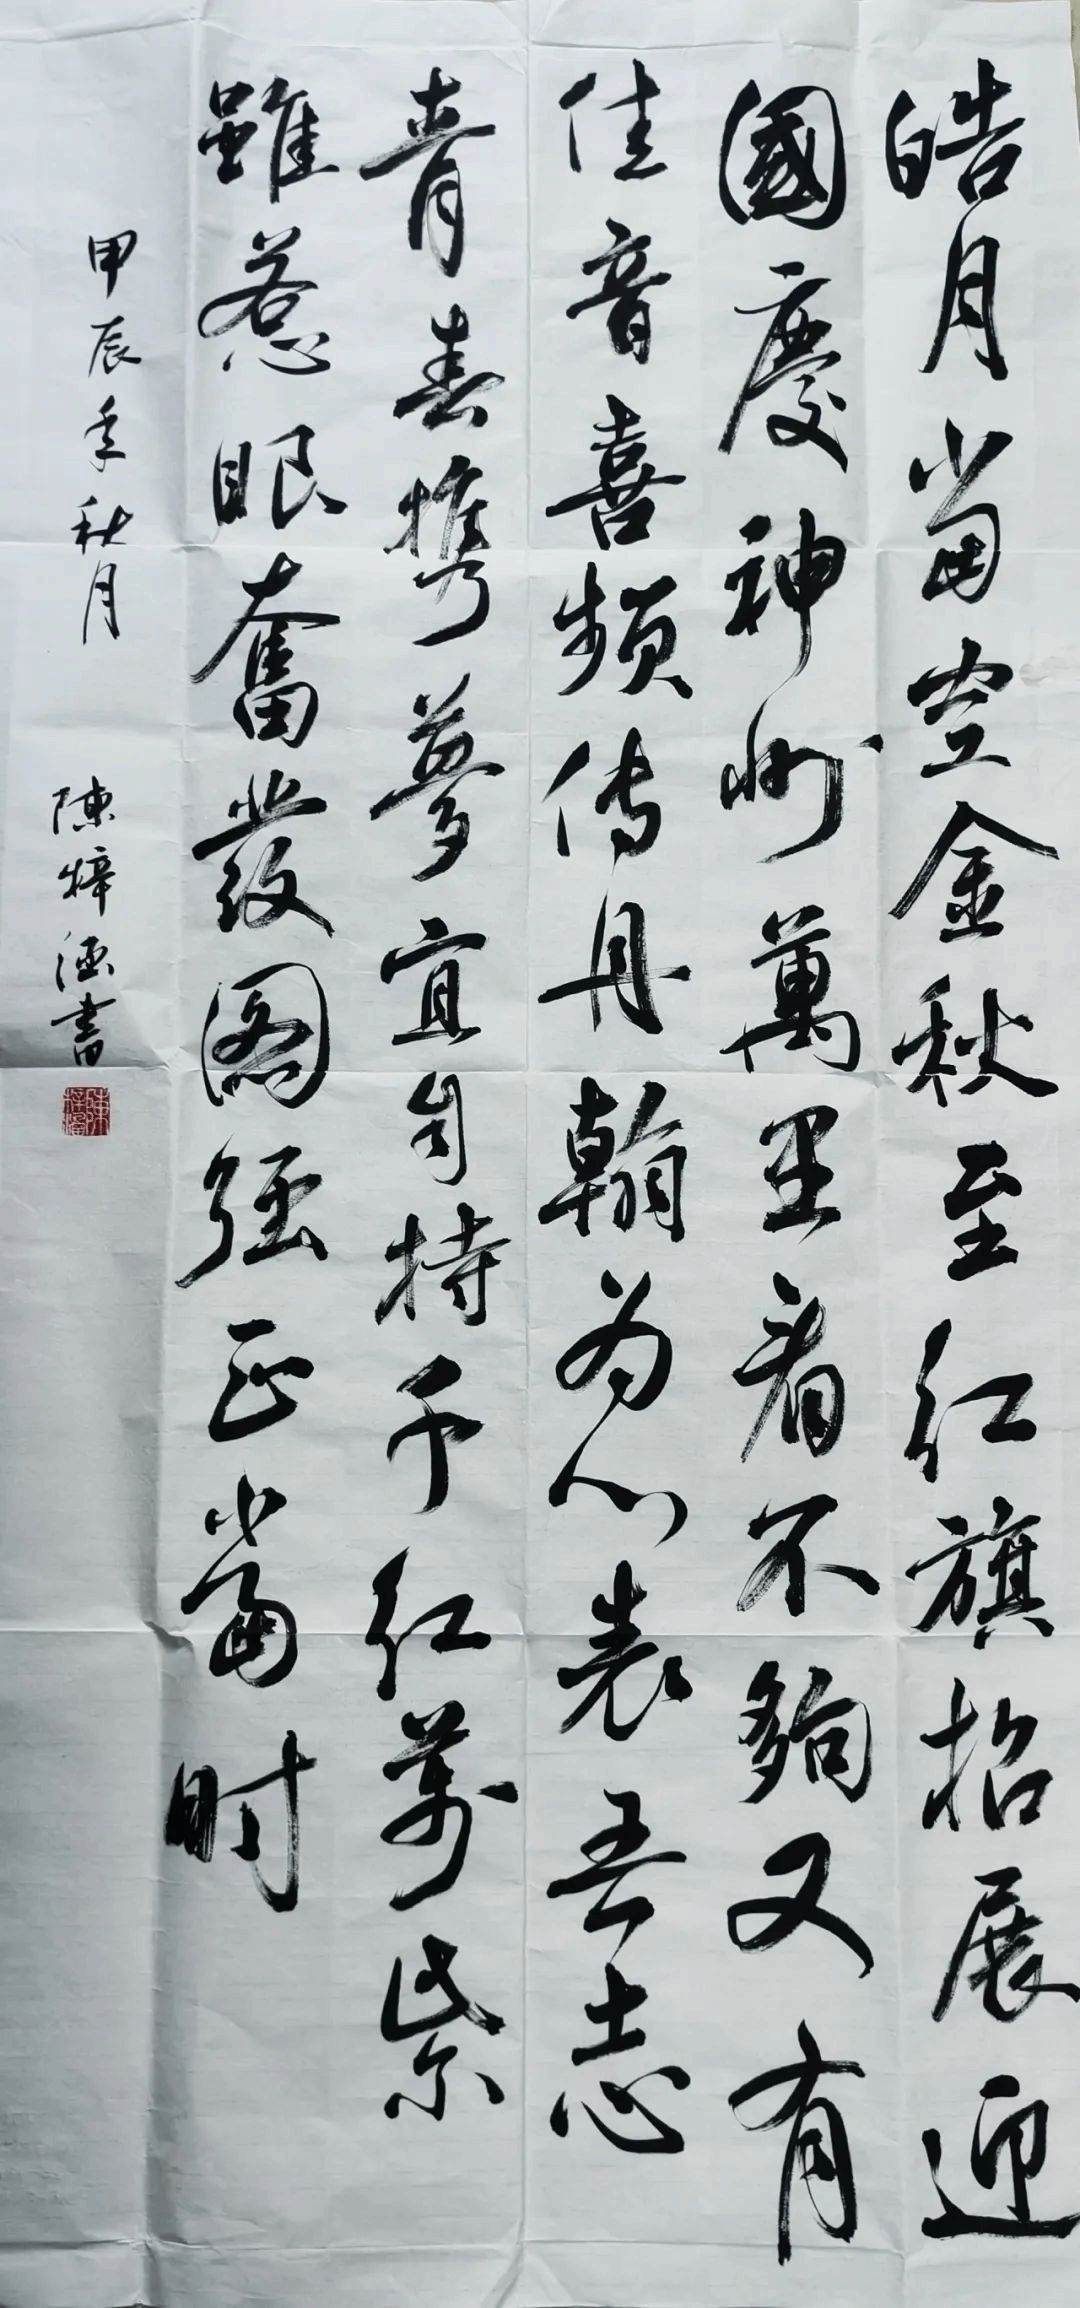 皓月當空金秋至红旗招展迎
國慶神州萬里看不夠又有
佳音喜频传丹翰为心表吾志
青春携夢宜自持千红萬紫
雖惹眼奮發圖强正當时
甲辰年秋月
陳梓涵書